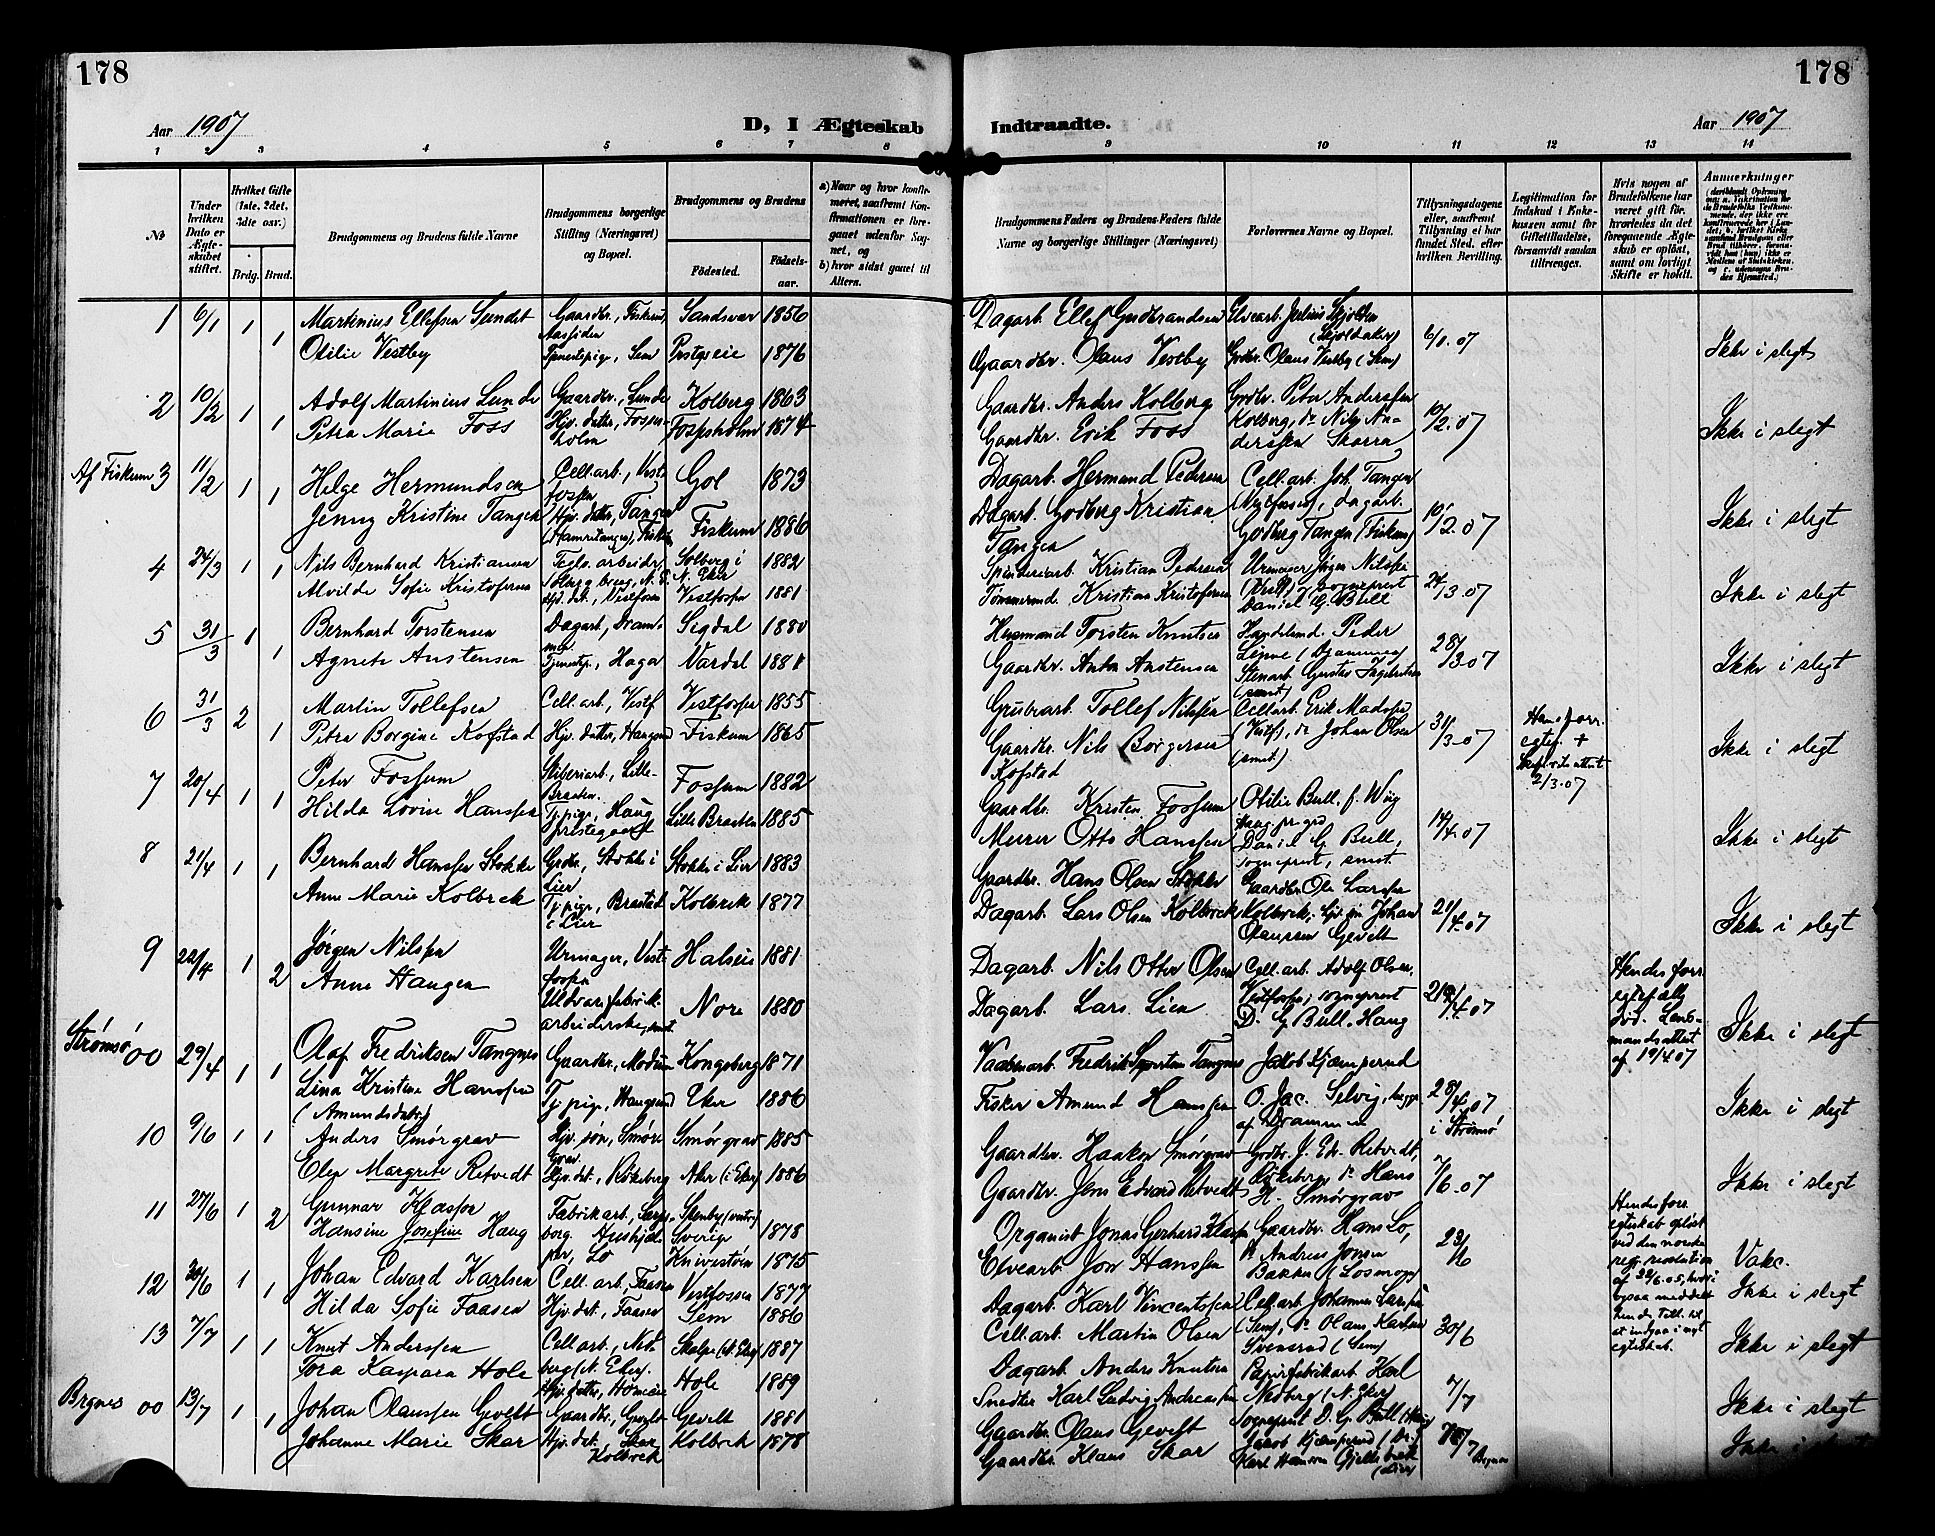 178
178
Aar 1907
D, I Ægteskab Indtraadte.
Aar 1907
1 2 3 4 5 6 7 8 9 10 11 12 13 14
No
Under hvilken Dato er Ægteskabet stiftet.
Hvilket Gifte (1ste, 2det, 3die osv.)
Brdg. Brud.
Brudgommens og Brudens fulde Navne
Brudgommens borgerlige Stilling (Næringsvei) og Bopæl.
Brudgommens og Brudens
Födested.
Födselsaar.
a) Naar og hvor konfirmeret, saafremt Konfirmationen er foregaaet udenfor Sognet, og
b) hvor sidst gaaet til Alters.
Brudgommens Faders og Brudens Faders fulde Navne og borgerlige Stillinger (Næringsvei)
Forlovernes Navne og Bopæl.
Tillysningsdagene eller, saafremt Tillysning ei har fundet Sted, efter hvilken Bevilling.
Legitimation for Indskud i Enkekassen samt for Giftetilladelse, forsaavidt saadan tiltrænges.
Hvis nogen af Brudefolkene har været gift før, hvorledes da det foregaaende Ægteskab er opløst, samt om lovligt Skifte er holdt.
Anmærkninger
1 6/1 1 Martinius Ellefsen Sundet Gaardbr., Fiskum, Sandsvær 1856 Dagarb. Ellef Gudbrandsen Elvearb. Julius Skjolden 6/1.07
1 Otilie Vestby Tjenestepige, Sem 1876 Gaardbr. Olaus Vestby Grdbr. Olaus Vestby (Sem) Ikke i slegt
2 10/2 1 Adolf Martinius Lunde Gaardbr., Lunde Kolberg 1863 Gaardbr. Anders Kolberg Grdbr. Peter Anderssen 10/2.07
1 Petra Marie Foss Hjv. datter, Fossesholm Fossesholm 1874 Gaardbr. Erik Foss Kolberg, do Nils Anderssen Skarra Ikke i slegt
Af Fiskum 3 11/2 1 Helge Hermundsen Cell.arb., Vestfossen Gol 1873 Dagarb. Hermund Pedersen Cell.arb. Joh. Tangen
1 Jenny Kristine Tangen Hjv. datter, Tangen Fiskum 1886 Dagarb. Godberg Kristian Tangen dagarb. Godberg Tangen (Fiskum) 10/2.07 Ikke i slegt
4 24/3 1 Nils Bernhard Kristiansen Teglv. arbeider Solberg i N. Eker 1882 Spinderiarb. Kristian Pedersen Urmager Jörgen Nilssen 24/3.07
1 Alvilde Sofie Kristofersen Hjv. det., Vestfossen Vestfossen 1881 Tømmermd. Kristian Kristofersen sogneprest Daniel G. Bull Ikke i slegt
5 31/3 1 Bernhard Torstensen Dagarb., Drammen Sigdal 1880 Husmand Torsten Knutsen Handelsmd. Peder 28/3.07
1 Agnete Anstensen Tjenestp., Haga Vardal 1881 Gaardbr. Anton Anstensen Stenarb. Gustav Ingebretsen Ikke i slegt
6 31/3 2 Martin Tollefsen Cell. arb., Vestf Vestfossen 1855 Grubearb. Tollef Nilssen Cell.arb. Erik Madssen 31/3.07
1 Petra Borgine Kofstad Hjv. datter, Haugsund Fiskum 1865 Gaardbr. Nils Borgersen Kofstad (Vestf), do Johan Olsen Ikke i slegt
Hans forr. egtef. + Skifteretsattest 2/3.07
7 20/4 1 Peter Fossum Sliberiarb., Lille-Braaten. Fossum 1882 Gaardbr. Kristen Fossum Otilie Bull f. Wiig
1 Hilda Lovise Hanssen Tj. pige, Haug prestegaard Lille Braaten 1885 Murer Otto Hanssen Daniel G. Bull, sogneprest, smst. 14/4.07 Ikke i slegt
8 21/4 1 Bernhard Hanssen Stokke Grdbr., Stokke i Lier Stokke i Lier 1883 Gaardbr. Hans Olsen Stokke Gaardbr. Ole Larssen
1 Anne Marie Kolbrek Tj. pige, Brastad i Lier Kolbrek 1877 Dagarb. Lars Olsen Kolbrek Kolbrek; Gjv. søn Johan Olaussen Gevelt 21/4.07 Ikke i slegt
9 22/4 1 Jørgen Nilssen Urmager, Vestfossen Halseie 1881 Dagarb. Nils Otter Olsen Cell. arb. Adolf Olsen,
2 Anne Haugen Uldvarefabrikarbeiderske, smst. Nore 1880 Dagarb. Lars Lien Vestfossen; sogneprest D. G Bull, Haug Ikke i slegt
Hendes forr. egtefælle død. Lensmandsattest af 19/4.07
Strømsø 00 29/4 1 Olaf Fredriksen Tangnes Gaardbr., Modum Kongsberg 1871 Vaabenarb. Fredrik Tangnes Jakob Kjemperud
1 Lina Kristine Hanssen (Amundsdatter) Tj. pige, Haugsund Eker 1886 Fisker Amund Hanssen O. Jac. Selvig, begge af Drammen 28/4.07 i Strømsø Ikke i slegt
10 9/6 1 Anders Smørgrav Hjv. søn, Smørgrav. Smørgrav 1885 Gaardbr. Haakon Smørgrav Grdbr. J. Edv. Retvedt,
1 Elen Margrete Retvedt Hjv. det., Røkeberg Aker (i Eker) 1886 Gaardbr. Jens Edvard Retvedt Røkeberg, do Hans H. Smørgrav 7/6.07 Ikke i slegt
11 27/6 1 Gunnar Klasson Fabrikarb., Sarpsborg Stenby Sverige 1878 Organist Jonas Gerhard Gaardbr. Hans Lo, 23/6
2 Hansine Josefine Haug Lo Knivestøen 1875 Elvearb. Jon Hanssen do Andreas Jonsen Bakken (Losmoen) Vakc.
Hendes forr. egteskab opløst ved den norske regj. resolution af 22/6.05, hvori ogsaa meddelt hende till. til at indgaa i nyt egteskab.
12 30/6 1 Johan Edvard Karlsen Cell. arb., Faasen Vestfossen 1877 Dagarb. Karl Vincentssen Cell. arb. Johannes Larssen Ikke i slegt
1 Hilda Sofie Faasen Hjv. det., Faasen Sem 1886 Cell. arb. Martin Olsen (Sem), do Olaus Karlsen Svensrud (Sem) 30/6
13 7/7 1 Knut Anderssen Cell. arb., Nedberg (N. Eker). 1887 Dagarb. Anders Knutsen Papirfabrikarb. Karl Nedberg (N. Eker) Ikke i slegt
1 Tora Kaspara Hole Hjv. datter, Hole 1889 Smedter Karl Ludvig Andreassen Sogneprest D. G. Bull (Haug) 7/7
Bragnes 00 13/7 1 Johan Olaussen Gevelt Gaardbr., Gevelt Gevelt 1881 Gaardbr. Olaus Gevelt Jakob Kjemperud (Dr.) Ikke i slegt
1 Johanne Marie Skar Hjv. det. Skar Kolbrek Kolbrek 1878 Gaardbr. Klaus Skar Karl Hansen Gjellebæk (Lier) Bragnes Ikke i slegt